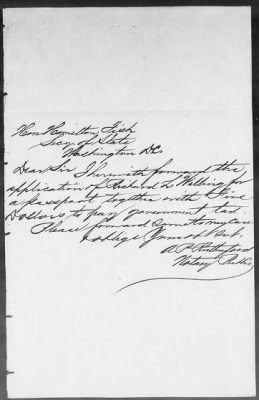 Hon Hamilton Fish
Secy of State
Washington DC
Dear Sir I herewith forward the
application of Richard L Walling for
a passport together with Five
Dollars to pay government tax.
Please forward same to my care
& oblige Yours
A P Rutherford
Notary Public